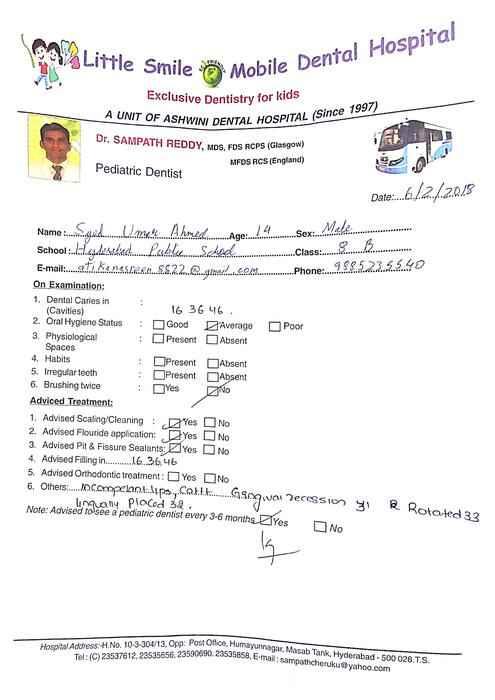 Little Smile Mobile Dental Hospital
Exclusive Dentistry for kids
A UNIT OF ASHWINI DENTAL HOSPITAL (Since 1997)
Dr. SAMPATH REDDY, MDS, FDS RCPS (Glasgow)
MFDS RCS (England)
Pediatric Dentist
Date: 6/2/2018
Name: Syed Umair Ahmed Age: 14 Sex: Male
School: Hyderabad Public School Class: 8 B
E-mail: @gmail.com Phone: 9885235540
On Examination:
1. Dental Caries in (Cavities) : 16 36 46.
2. Oral Hygiene Status : Good Average Poor
3. Physiological Spaces : Present Absent
4. Habits : Present Absent
5. Irregular teeth : Present Absent
6. Brushing twice : Yes No
Adviced Treatment:
1. Advised Scaling/Cleaning : Yes No
2. Advised Flouride application: Yes No
3. Advised Pit & Fissure Sealants: Yes No
4. Advised Filling in 16 36 46
5. Advised Orthodontic treatment : Yes No
6. Others: Incompetant lips, Gingival recession 31 Rotated 33
lingually placed 32.
Note: Advised to see a pediatric dentist every 3-6 months Yes No
Hospital Address:-H.No. 10-3-304/13, Opp: Post Office, Humayunnagar, Masab Tank, Hyderabad - 500 028.T.S.
Tel : (C) 23537612, 23535656, 23590690. 23535858, E-mail : sampathcheruku@yahoo.com